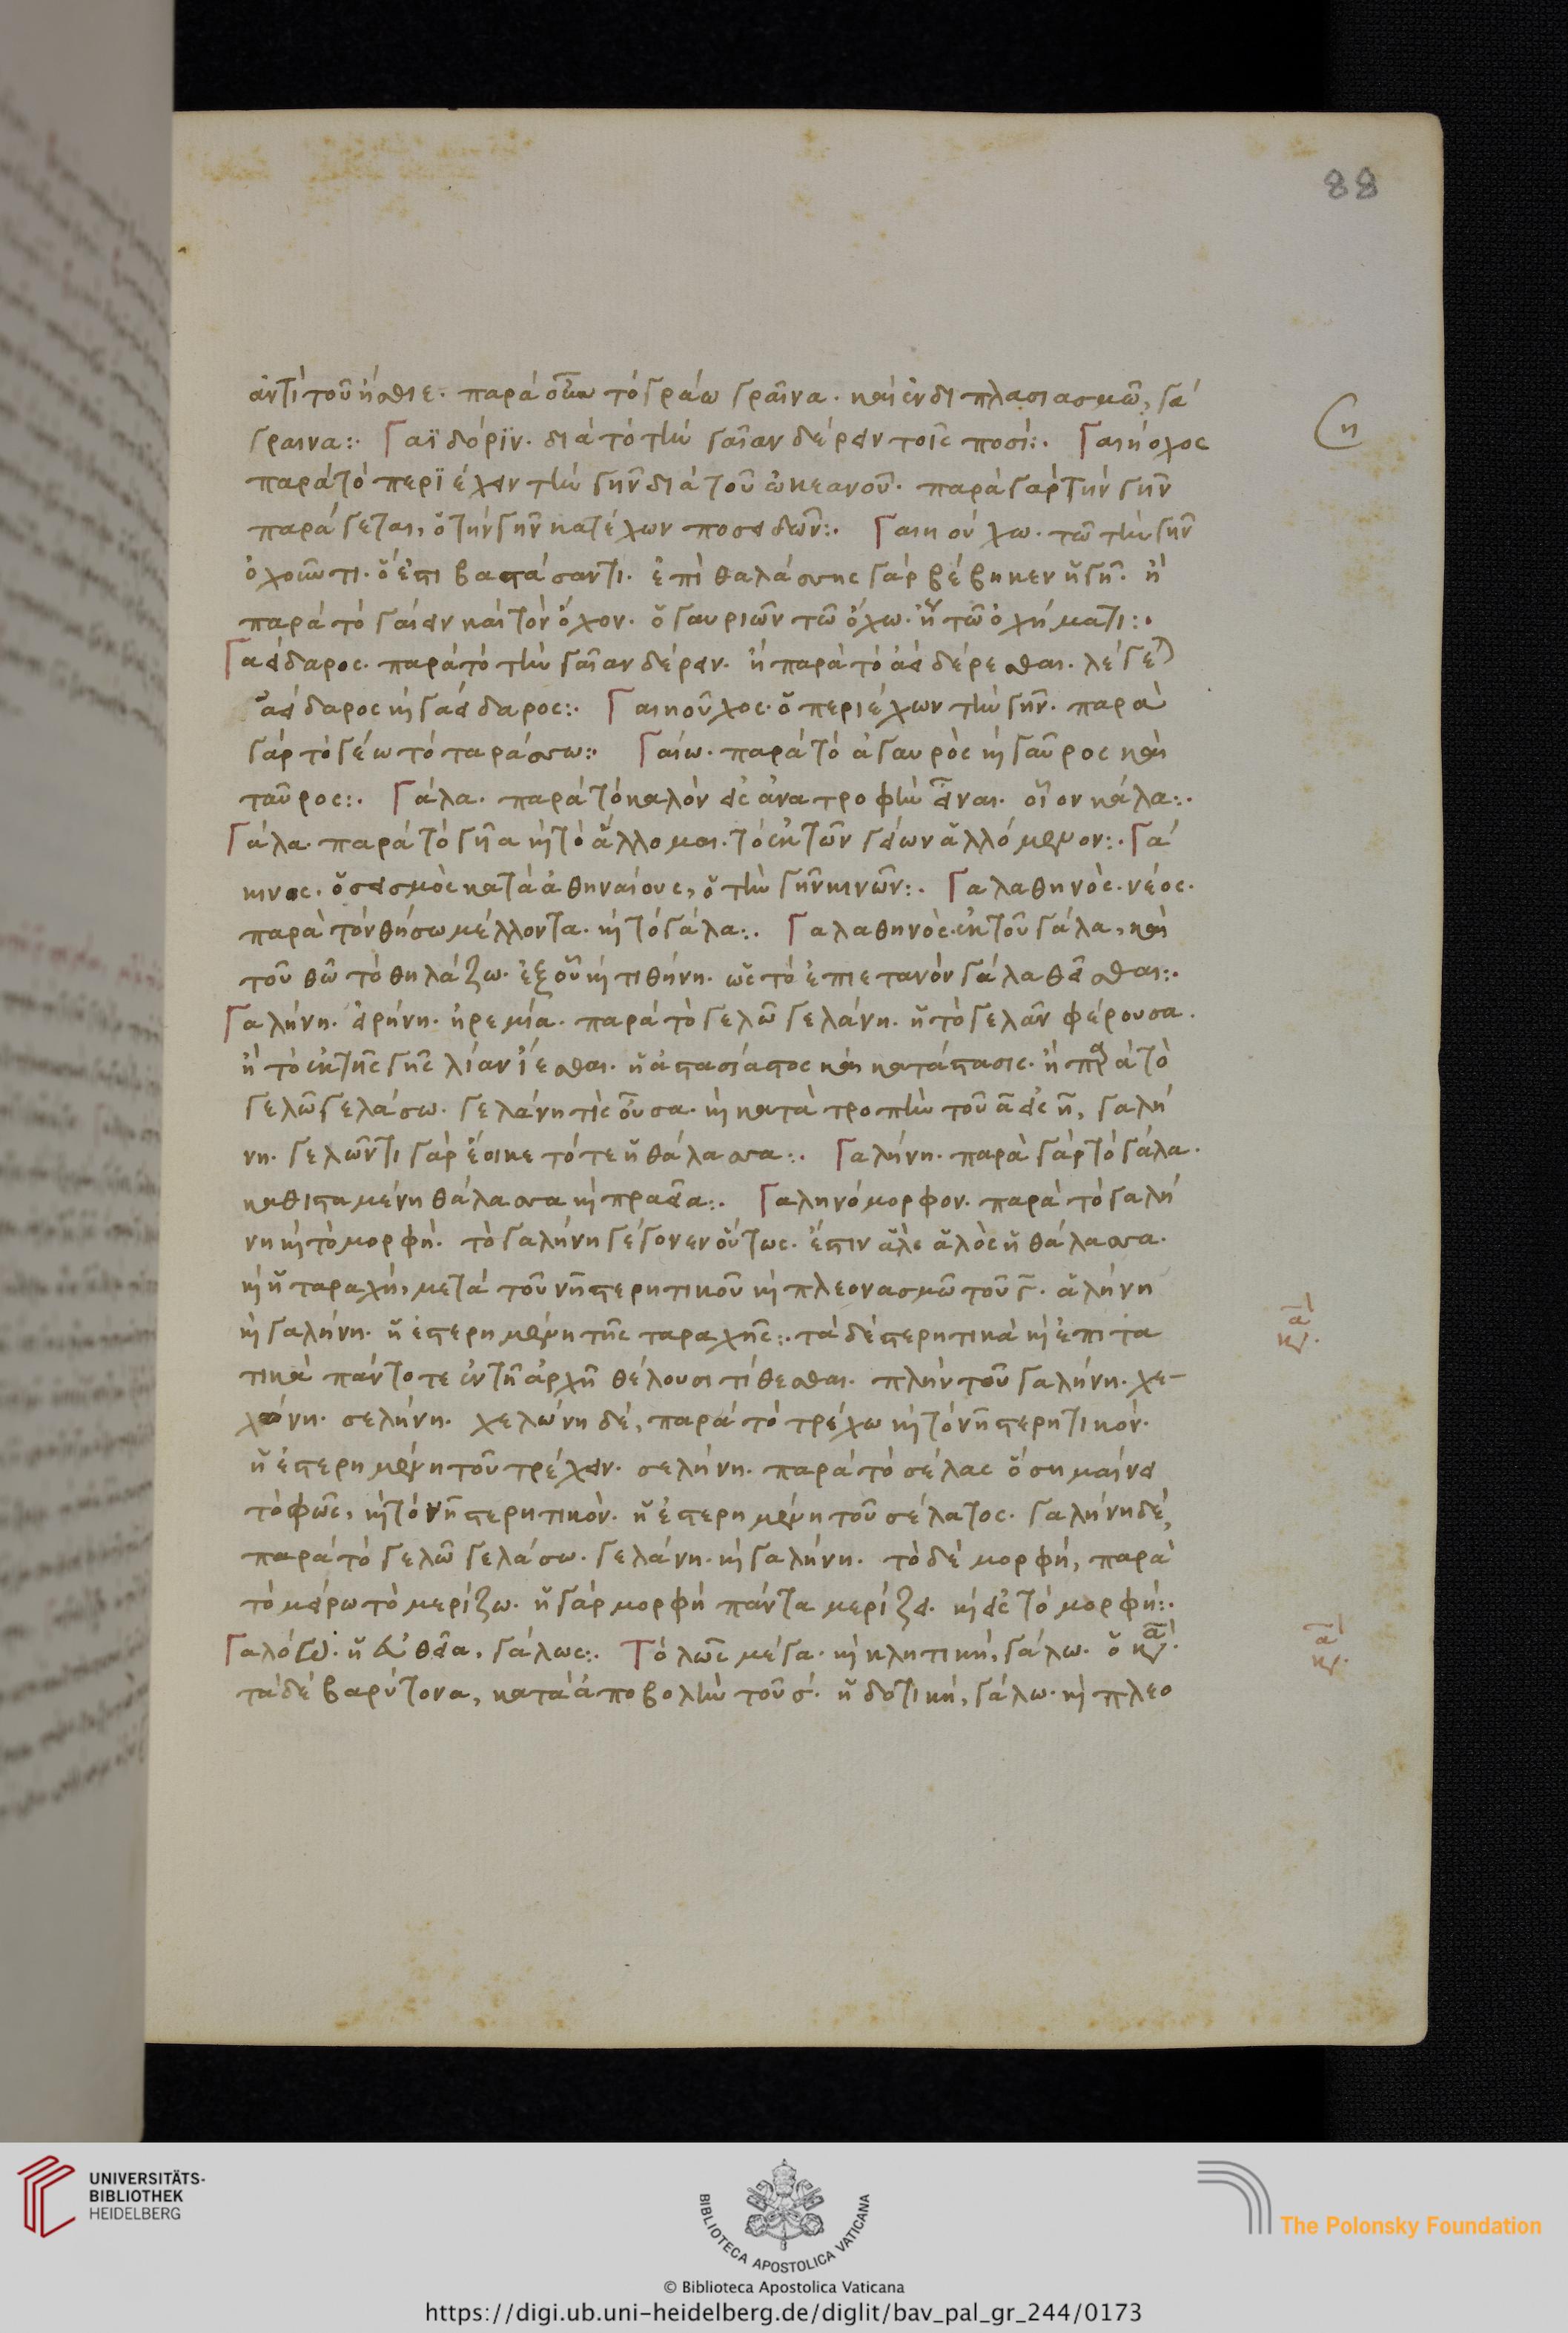 88
ἀντὶ τοῦ ἤσθιε. παρὰ οὖν τὸ γράω γραῖνα. καὶ ἐν διπλασιασμῶ, γά
γραινα:. Γαϊδόριν. διὰ τὸ τὴν γαῖαν δέρειν τοῖς ποσί:. Γαιήοχος
παρὰ τὸ περιέχειν τὴν γῆν διὰ τοῦ ὠκεανοῦ. παρὰ γὰρ τὴν γῆν
παράγεται, ὁ τὴν γῆν κατέχων ποσειδῶν:. Γαιηούχω. τῶ τὴν γῆν
ὀχοῦντι. ὅ ἐστι βαστάσαντι. ἐπὶ θαλάσσης γὰρ βέβηκεν ἡ γῆ. ἢ
παρὰ τὸ γαίειν καὶ τὸν ὄχον. ὁ γαυριῶν τῶ ὄχω. ἤγουν τῶ ὀχήματι:.
Γαείδαρος. παρὰ τὸ τὴν γαῖαν δέρειν. ἢ παρὰ τὸ ἀεὶ δέρεσθαι. λέγεται
ἀείδαρος καὶ γαείδαρος:. Γαιηοῦχος. ὁ περιέχων τὴν γῆν. παρὰ
γὰρ τὸ γέω τὸ ταράσσω:. Γαίω. παρὰ τὸ ἀγαυρὸς καὶ γαῦρος καὶ
ταῦρος:. Γάλα. παρὰ τὸ καλὸν εἰς ἀνατροφὴν εἶναι. οἷον κάλα:.
Γάλα. παρὰ τὸ γῆα καὶ τὸ ἅλλομαι. τὸ ἐκ τῶν γείων ἁλλόμενον:. Γά
κινος. ὁ σεισμὸς κατὰ ἀθηναίους, ὁ τὴν γῆν κινῶν:. Γαλαθηνὸς. νέος.
παρὰ τὸν θήσω μέλλοντα. καὶ τὸ γάλα:. Γαλαθηνὸς. ἐκ τοῦ γάλα, καὶ
τοῦ θῶ τὸ θηλάζω. ἐξ οὗ καὶ τιθήνη. ὡς τὸ ἐπιετανὸν γάλα θεῖσθαι:.
Γαλήνη. εἰρήνη. ἠρεμία. παρὰ τὸ γελῶ γελάνη. ἡ τὸ γελᾶν φέρουσα.
ἢ τὸ ἐκ τῆς γῆς λίαν ἵεσθαι. ἡ ἀστασίαστος καὶ κατάστασις. ἢ παρὰ τὸ
γελῶ γελάσω. γελάνη τὶς οὖσα. καὶ κατὰ τροπὴν τοῦ α εἰς η, γαλή
νη. γελῶντι γὰρ ἔοικε τότε ἡ θάλασσα:. Γαλήνη. παρὰ γὰρ τὸ γάλα.
καθισταμένη θάλασσα καὶ πραεῖα:. Γαληνόμορφον. παρὰ τὸ γαλή
νη καὶ τὸ μορφή. τὸ γαλήνη γέγονεν οὕτως. ἔστιν ἃλς ἁλὸς ἡ θάλασσα.
καὶ ἡ ταραχή, μετὰ τοῦ νη στερητικοῦ καὶ πλεονασμῶ τοῦ γ. ἁλήνη
καὶ γαλήνη. ἡ ἐστερημένη τῆς ταραχῆς:. τὰ δὲ στερητικὰ καὶ ἐπιτα
τικὰ πάντοτε ἐν τῆ ἀρχῆ θέλουσι τίθεσθαι. πλὴν τοῦ γαλήνη. χε-
λώνη. σελήνη. χελώνη δέ, παρὰ τὸ τρέχω καὶ τὸ νη στερητικόν.
ἡ ἐστερημένη τοῦ τρέχειν. σελήνη. παρὰ τὸ σέλας ὃ σημαίνει
τὸ φῶς, καὶ τὸ νη στερητικὸν. ἡ ἐστερημένη τοῦ σέλατος. γαλήνη δὲ,
παρὰ τὸ γελῶ γελάσω. γελάνη. καὶ γαλήνη. τὸ δὲ μορφή, παρὰ
τὸ μείρω τὸ μερίζω. ἡ γὰρ μορφὴ πάντα μερίζει. καὶ εἰς τὸ μορφή:.
Γαλόω. ἡ εὐθεῖα, γάλως:. Τὸ λως μέγα. καὶ κλητική, γάλω. ὁ κα.
τὰ δὲ βαρύτονα, κατὰ ἀποβολὴν τοῦ σ. ἡ δοτική, γάλω. καὶ πλεο
UNIVERSITÄTS-
BIBLIOTHEK
HEIDELBERG
BIBLIOTECA APOSTOLICA VATICANA
The Polonsky Foundation
© Biblioteca Apostolica Vaticana
https://digi.ub.uni-heidelberg.de/diglit/bav_pal_gr_244/0173